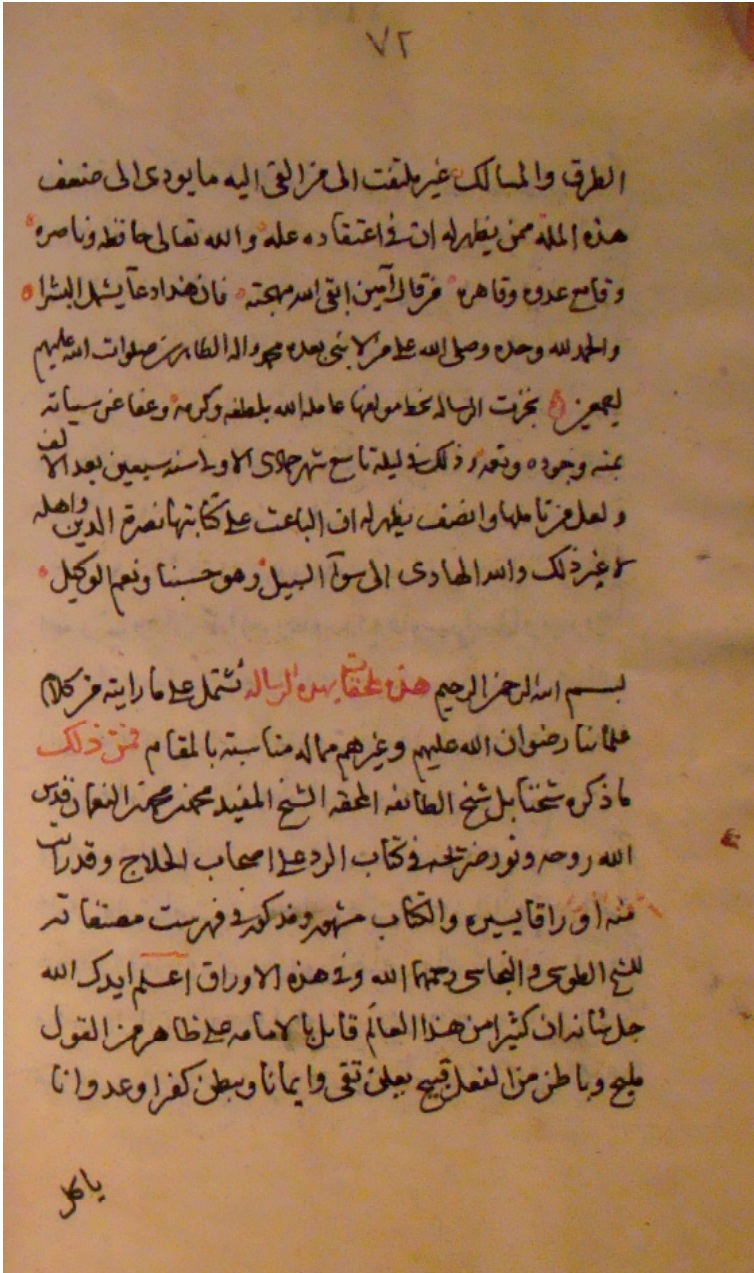 ٧٢
الطرق والمسالك غير ملتفت الى من القى اليه ما يودى الى ضعف
هذه الملة ممن يظهر له ان فى اعتقاده عله والله تعالى حافظه وناصره
وقامع عدوه وقاهره من قال آمين ابقى الله مهجته فان هذا دعآ يشمل البشرا
والحمد لله وحده وصلى الله على من لا نبى بعده محمد واله الطاهرين صلوات الله عليهم
اجمعين نجزت الرساله بخط مولفها عامله الله بلطفه وكرمه وعفا عن سياته
بمنه وجوده ونعمه وذلك فى ليلة تاسع شهر جمادى الاولى سنه سبعين بعد الالف
ولعل من تاملها وانصف يظهر له ان الباعث على كتابتها نصرة الدين واهله
لا غير ذلك والله الهادى الى سوآ السبيل وهو حسبنا ونعم الوكيل
بسم الله الرحمن الرحيم هذه ملحقات بهذه الرساله تشتمل على ما رايته من كلام
علمائنا رضوان الله عليهم وغيرهم مما له مناسبة بالمقام فمن ذلك
ما ذكره شيخنا بل شيخ الطائفه المحقه الشيخ المفيد محمد بن محمد بن النعمان قدس
الله روحه ونور ضريحه فى كتاب الرد على اصحاب الحلاج وقد رايت
منه اوراقا يسيره والكتاب مشهور ومذكور فى فهرست مصنفاته
للشيخ الطوسى والنجاشى رحمهما الله وفى هذه الاوراق اعلم ايدك الله
جل شانه ان كثيرا من هذا العالم قايل بالامامه على ظاهر من القول
مليح وباطن من الفعل قبيح يعلن تقى وايمانا ويبطن كفرا وعدوانا
ياكل